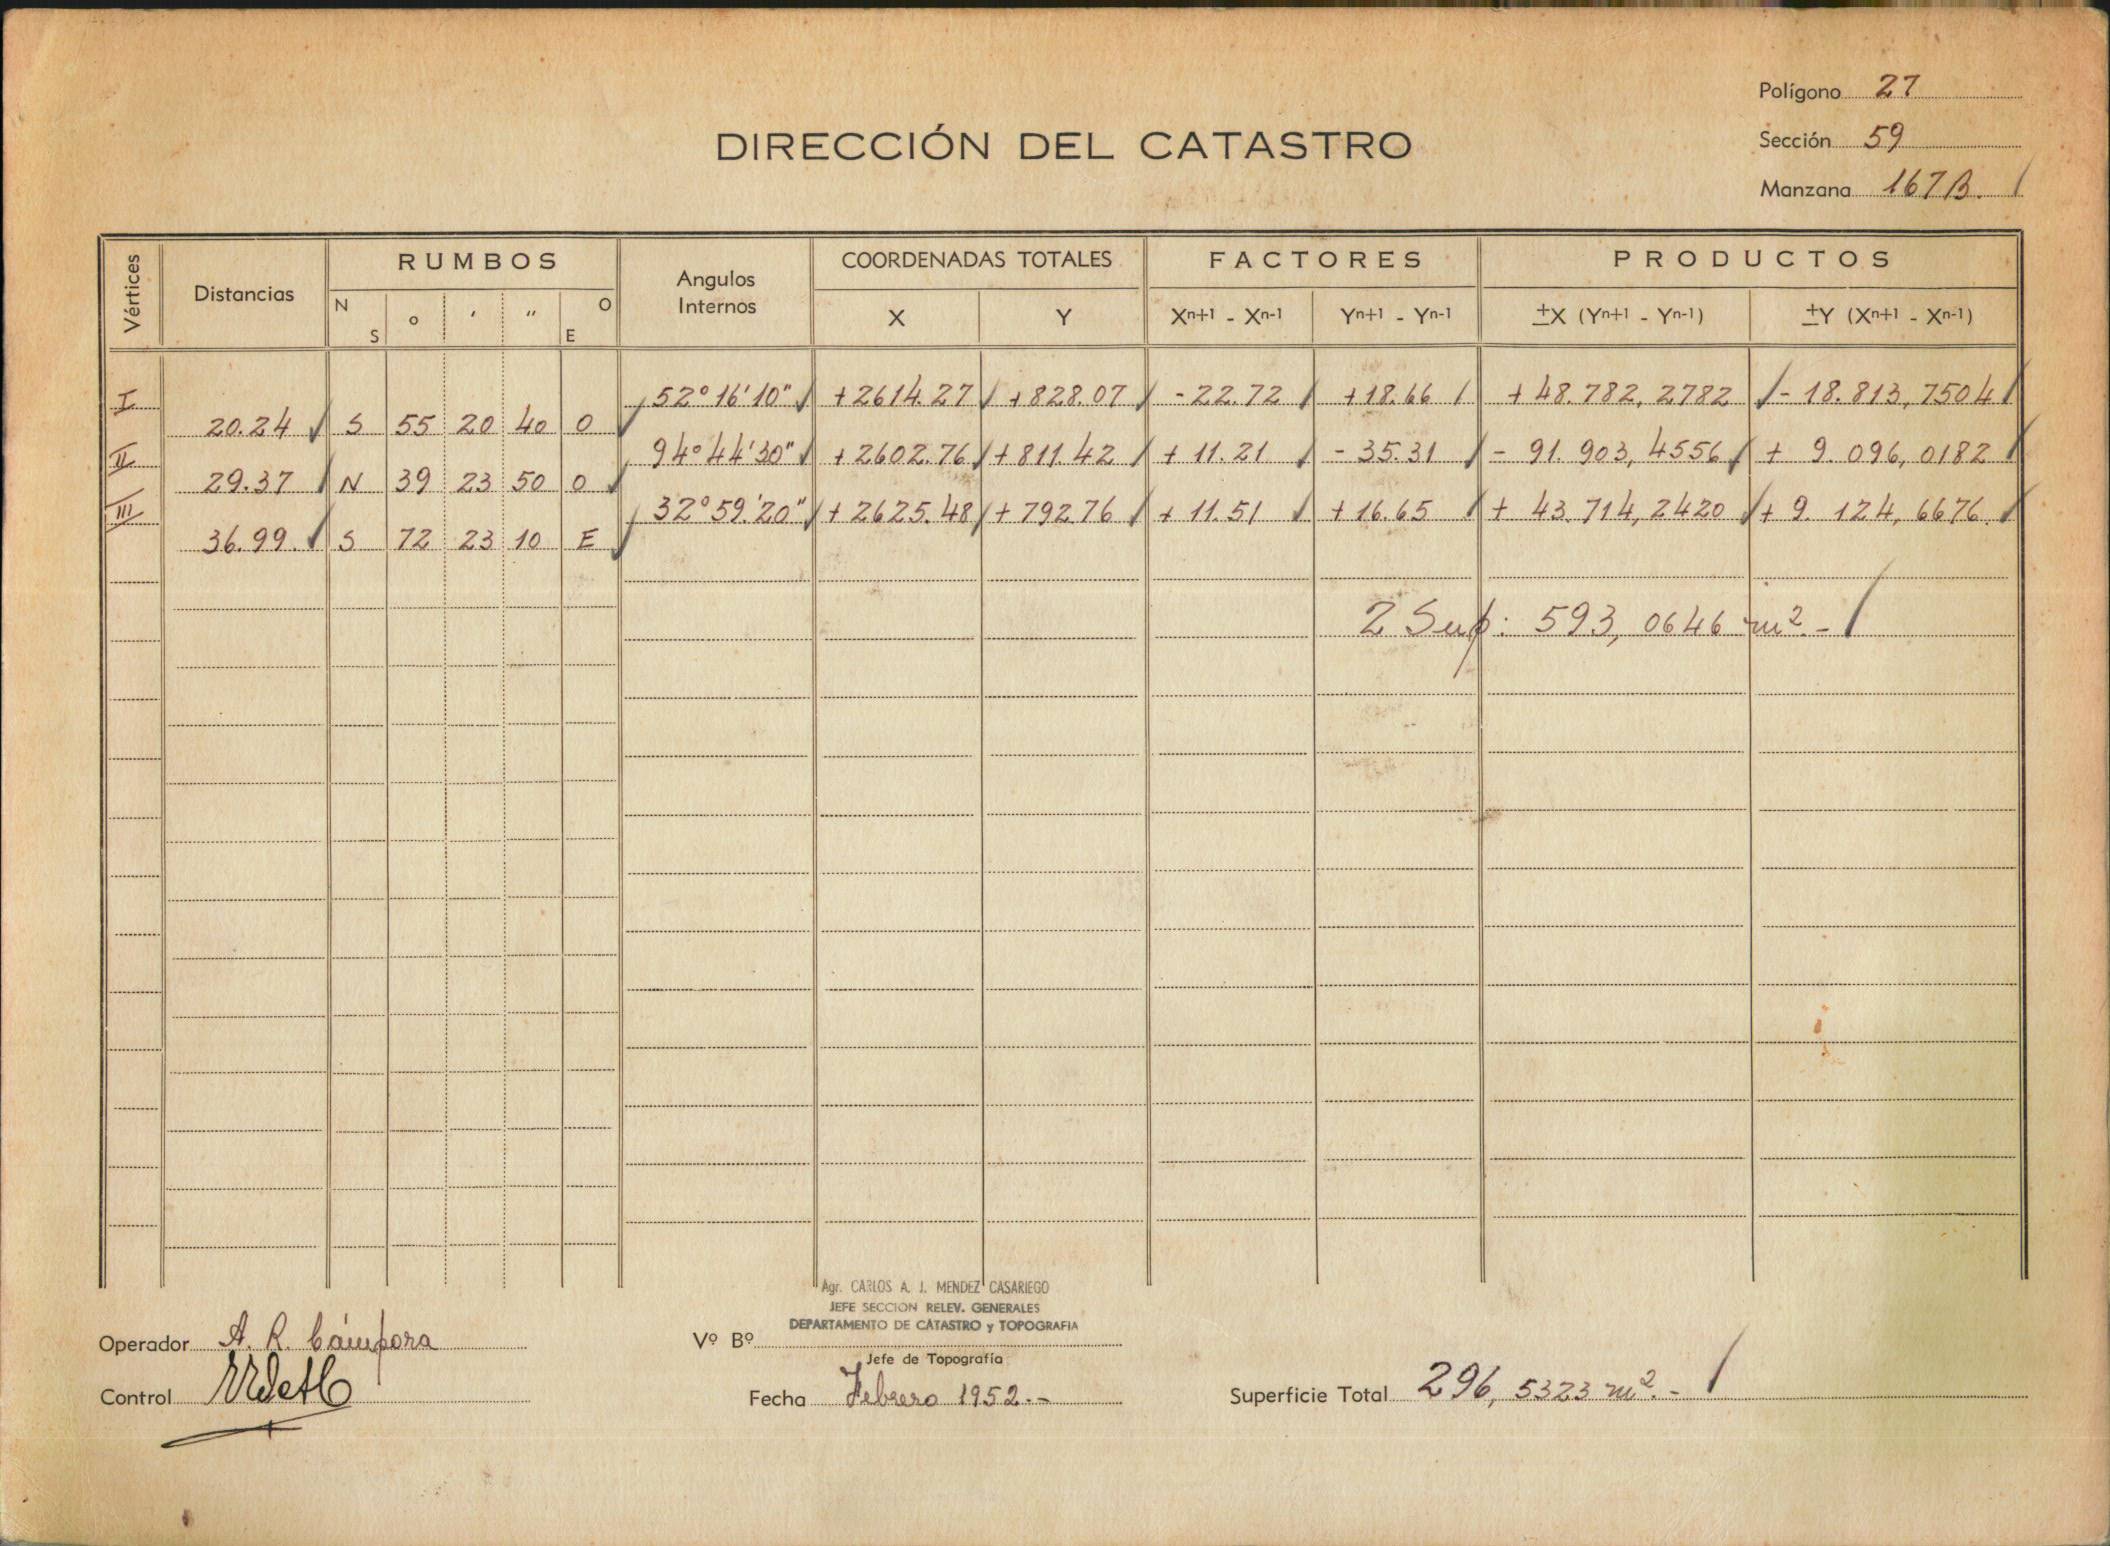 Polígono 27
DIRECCIÓN DEL CATASTRO
Sección 59
Manzana 167B.
Vértices Distancias RUMBOS Angulos Internos COORDENADAS TOTALES FACTORES PRODUCTOS
N S o ' " O E X Y Xn+1 - Xn-1 Yn+1 - Yn-1 ±X (Yn+1 - Yn-1) ±Y (Xn+1 - Xn-1)
I 52° 16' 10" +2614.27 +828.07 -22.72 +18.66 +48.782,2782 -18.813,7504
20.24 S 55 20 40 O
II 94° 44' 30" +2602.76 +811.42 +11.21 -35.31 -91.903,4556 +9.096,0182
29.37 N 39 23 50 O
III 32° 59.'20" +2625.48 +792.76 +11.51 +16.65 +43.714,2420 +9.124,6676.
36.99. S 72 23 10 E
2 Sup: 593,0646 m².-
Agr. CARLOS A. J. MENDEZ CASARIEGO
JEFE SECCION RELEV. GENERALES
DEPARTAMENTO DE CATASTRO y TOPOGRAFIA
Operador A. R. Cámpora Vº Bº
Jefe de Topografía
Control Fecha Febrero 1952.- Superficie Total 296,5323 m².-